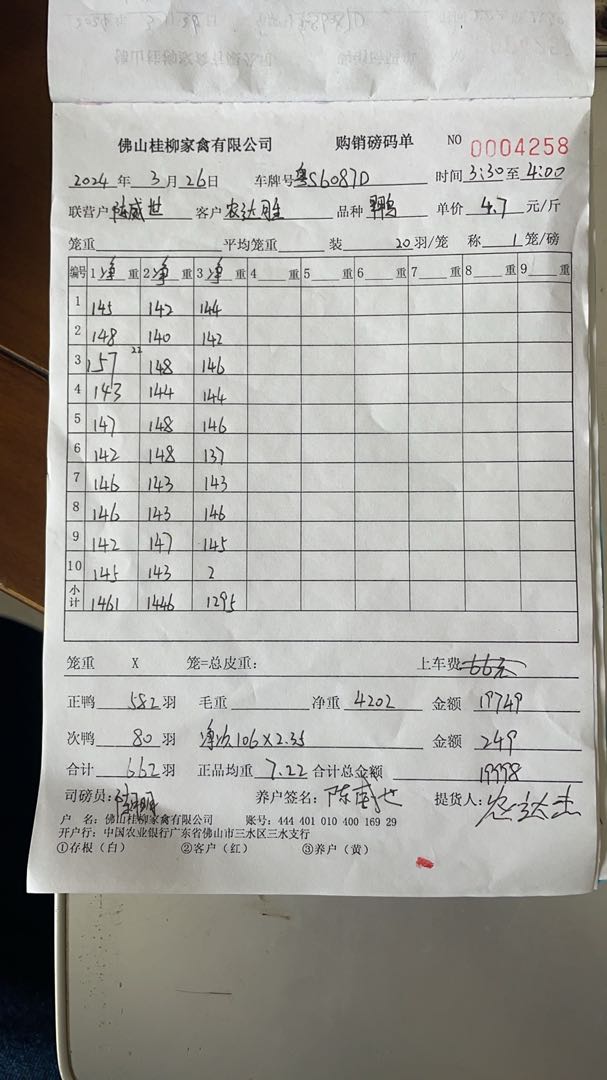 佛山桂柳家禽有限公司 购销磅码单 NO 0004258
2024年3月26日 车牌号粤S6087D 时间3:30至4:00
联营户陈威世 客户农达 品种 单价4.7元/斤
笼重 平均笼重 装20羽/笼 称1笼/磅
编号 1净重 2净重 3净重 4重 5重 6重 7重 8重 9重
1 145 142 144
2 148 140 142
3 157 22 148 146
4 143 144 144
5 147 148 146
6 142 148 137
7 146 143 143
8 146 143 146
9 142 147 145
10 145 143 2
小计 1461 1446 1295
笼重 X 笼=总皮重: 上车费66元
正鸭582羽 毛重 净重4202 金额19749
次鸭80羽 净次106×2.35 金额249
合计662羽 正品均重7.22 合计总金额19998
司磅员: 养户签名:陈威世 提货人:农达
户 名:佛山桂柳家禽有限公司 账号:444 401 010 400 169 29
开户行:中国农业银行广东省佛山市三水区三水支行
①存根(白) ②客户(红) ③养户(黄)